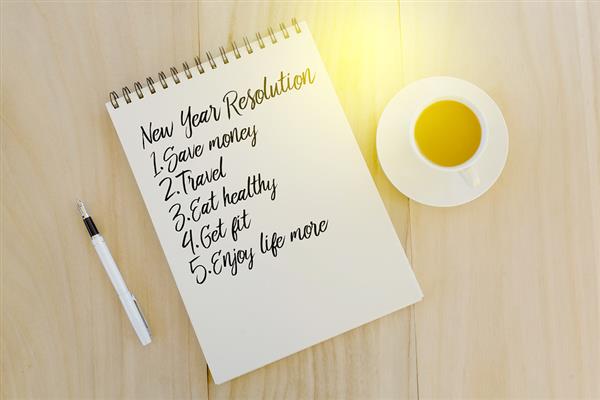 New Year Resolution
1.Save money
2.Travel
3.Eat healthy
4.Get fit
5.Enjoy life more